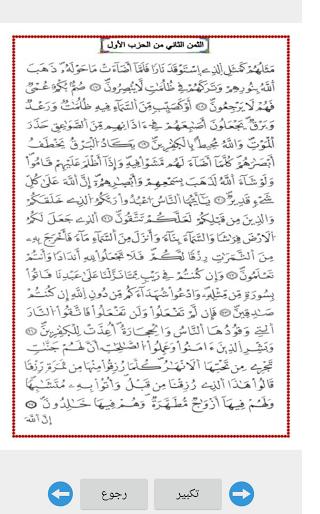 الثمن الثاني من الحزب الأول
مَثَلُهُمْ كَمَثَلِ اِلذِے اِسْتَوْقَدَ نَاراٗ فَلَمَّآ أَضَآءَتْ مَا حَوْلَهُۥ ذَهَبَ
اَللَّهُ بِنُورِهِمْ وَتَرَكَهُمْ فِے ظُلُمَٰتٖ لَّا يُبْصِرُونَ صُمُّۢ بُكْمٌ عُمْيٞ
فَهُمْ لَا يَرْجِعُونَ أَوْ كَصَيِّبٖ مِّنَ اَلسَّمَآءِ فِيهِ ظُلُمَٰتٞ وَرَعْدٞ
وَبَرْقٞ يَجْعَلُونَ أَصَٰبِعَهُمْ فِےٓ ءَاذَانِهِم مِّنَ اَلصَّوَٰعِقِ حَذَرَ
اَلْمَوْتِ وَاللَّهُ مُحِيطُۢ بِالْكٰ۪فِرِينَ يَكَادُ اُلْبَرْقُ يَخْطَفُ
أَبْصَٰرَهُمْ كُلَّمَآ أَضَآءَ لَهُم مَّشَوْاْ فِيهِ وَإِذَآ أَظْلَمَ عَلَيْهِمْ قَامُواْ
وَلَوْ شَآءَ اَللَّهُ لَذَهَبَ بِسَمْعِهِمْ وَأَبْصٰ۪رِهِمُۥٓ إِنَّ اَللَّهَ عَلَىٰ كُلِّ
شَےْءٖ قَدِيرٞ يَٰٓأَيُّهَا اَلنَّاسُ اُعْبُدُواْ رَبَّكُمُ اُلذِے خَلَقَكُمْ
وَالذِينَ مِن قَبْلِكُمْ لَعَلَّكُمْ تَتَّقُونَ اَلذِے جَعَلَ لَكُمُ
اُلْأَرْضَ فِرَٰشاٗ وَالسَّمَآءَ بِنَآءٗ وَأَنزَلَ مِنَ اَلسَّمَآءِ مَآءٗ فَأَخْرَجَ بِهِۦ
مِنَ اَلثَّمَرَٰتِ رِزْقاٗ لَّكُمْ فَلَا تَجْعَلُواْ لِلهِ أَندَاداٗ وَأَنتُمْ
تَعْلَمُونَ وَإِن كُنتُمْ فِے رَيْبٖ مِّمَّا نَزَّلْنَا عَلَىٰ عَبْدِنَا فَاتُواْ
بِسُورَةٖ مِّن مِّثْلِهِۦ وَادْعُواْ شُهَدَآءَكُم مِّن دُونِ اِللَّهِ إِن كُنتُمْ
صَٰدِقِينَ فَإِن لَّمْ تَفْعَلُواْ وَلَن تَفْعَلُواْ فَاتَّقُواْ اُلنَّارَ
اَلتِے وَقُودُهَا اَلنَّاسُ وَالْحِجَارَةُ أُعِدَّتْ لِلْكٰ۪فِرِينَ
وَبَشِّرِ اِلذِينَ ءَامَنُواْ وَعَمِلُواْ اُلصَّٰلِحَٰتِ أَنَّ لَهُمْ جَنَّٰتٖ
تَجْرِے مِن تَحْتِهَا اَلْأَنْهَٰرُ كُلَّمَا رُزِقُواْ مِنْهَا مِن ثَمَرَةٖ رِّزْقاٗ
قَالُواْ هَٰذَا اَلذِے رُزِقْنَا مِن قَبْلُ وَأُتُواْ بِهِۦ مُتَشَٰبِهاٗ
وَلَهُمْ فِيهَآ أَزْوَٰجٞ مُّطَهَّرَةٞ وَهُمْ فِيهَا خَٰلِدُونَ
إِنَّ اَللَّهَ
تكبير
رجوع